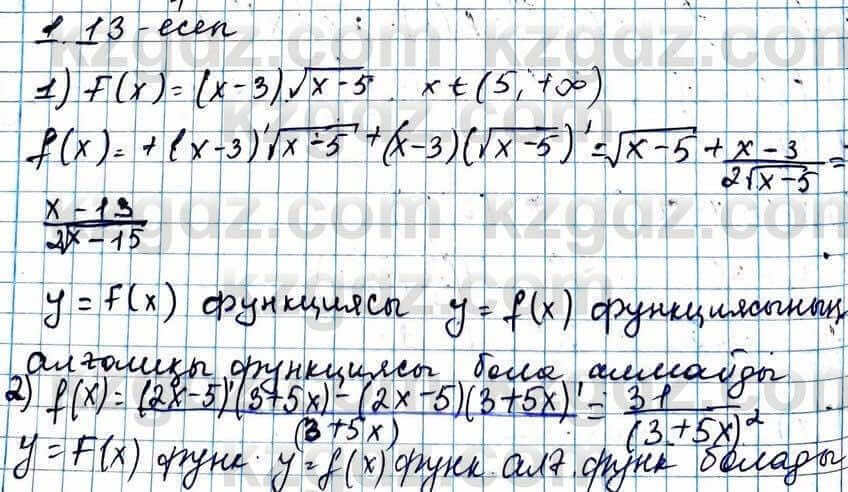 1.13-есеп
1) F(x) = (x-3)√x-5 x ∈ (5, +∞)
f(x) = + (x-3)'√x-5 + (x-3)(√x-5)' = √x-5 + x-3/2√x-5 =
x-13/2√x-15
y = F(x) функциясы y = f(x) функциясының
алғашқы функциясы бола алмайды
2) f(x) = (2x-5)'(3+5x) - (2x-5)(3+5x)'/(3+5x) = 31/(3+5x)²
y = F(x) функ. y = f(x) функ. алғ. функ болады